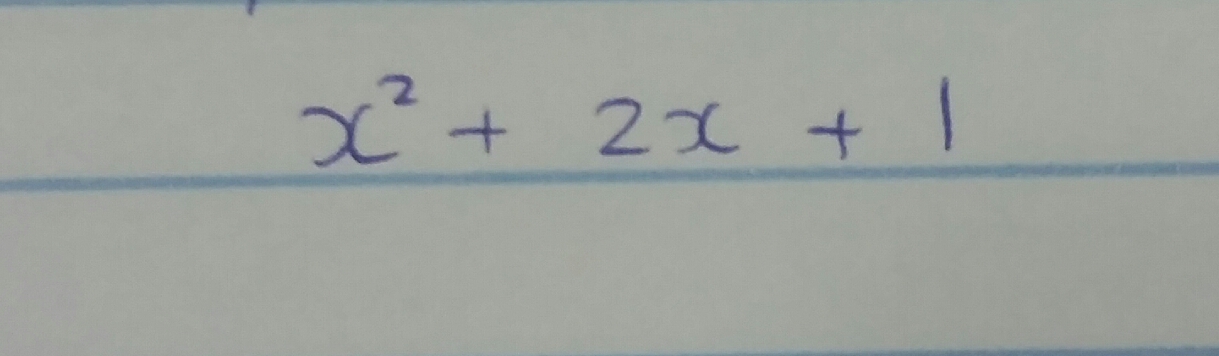 x² + 2x + 1